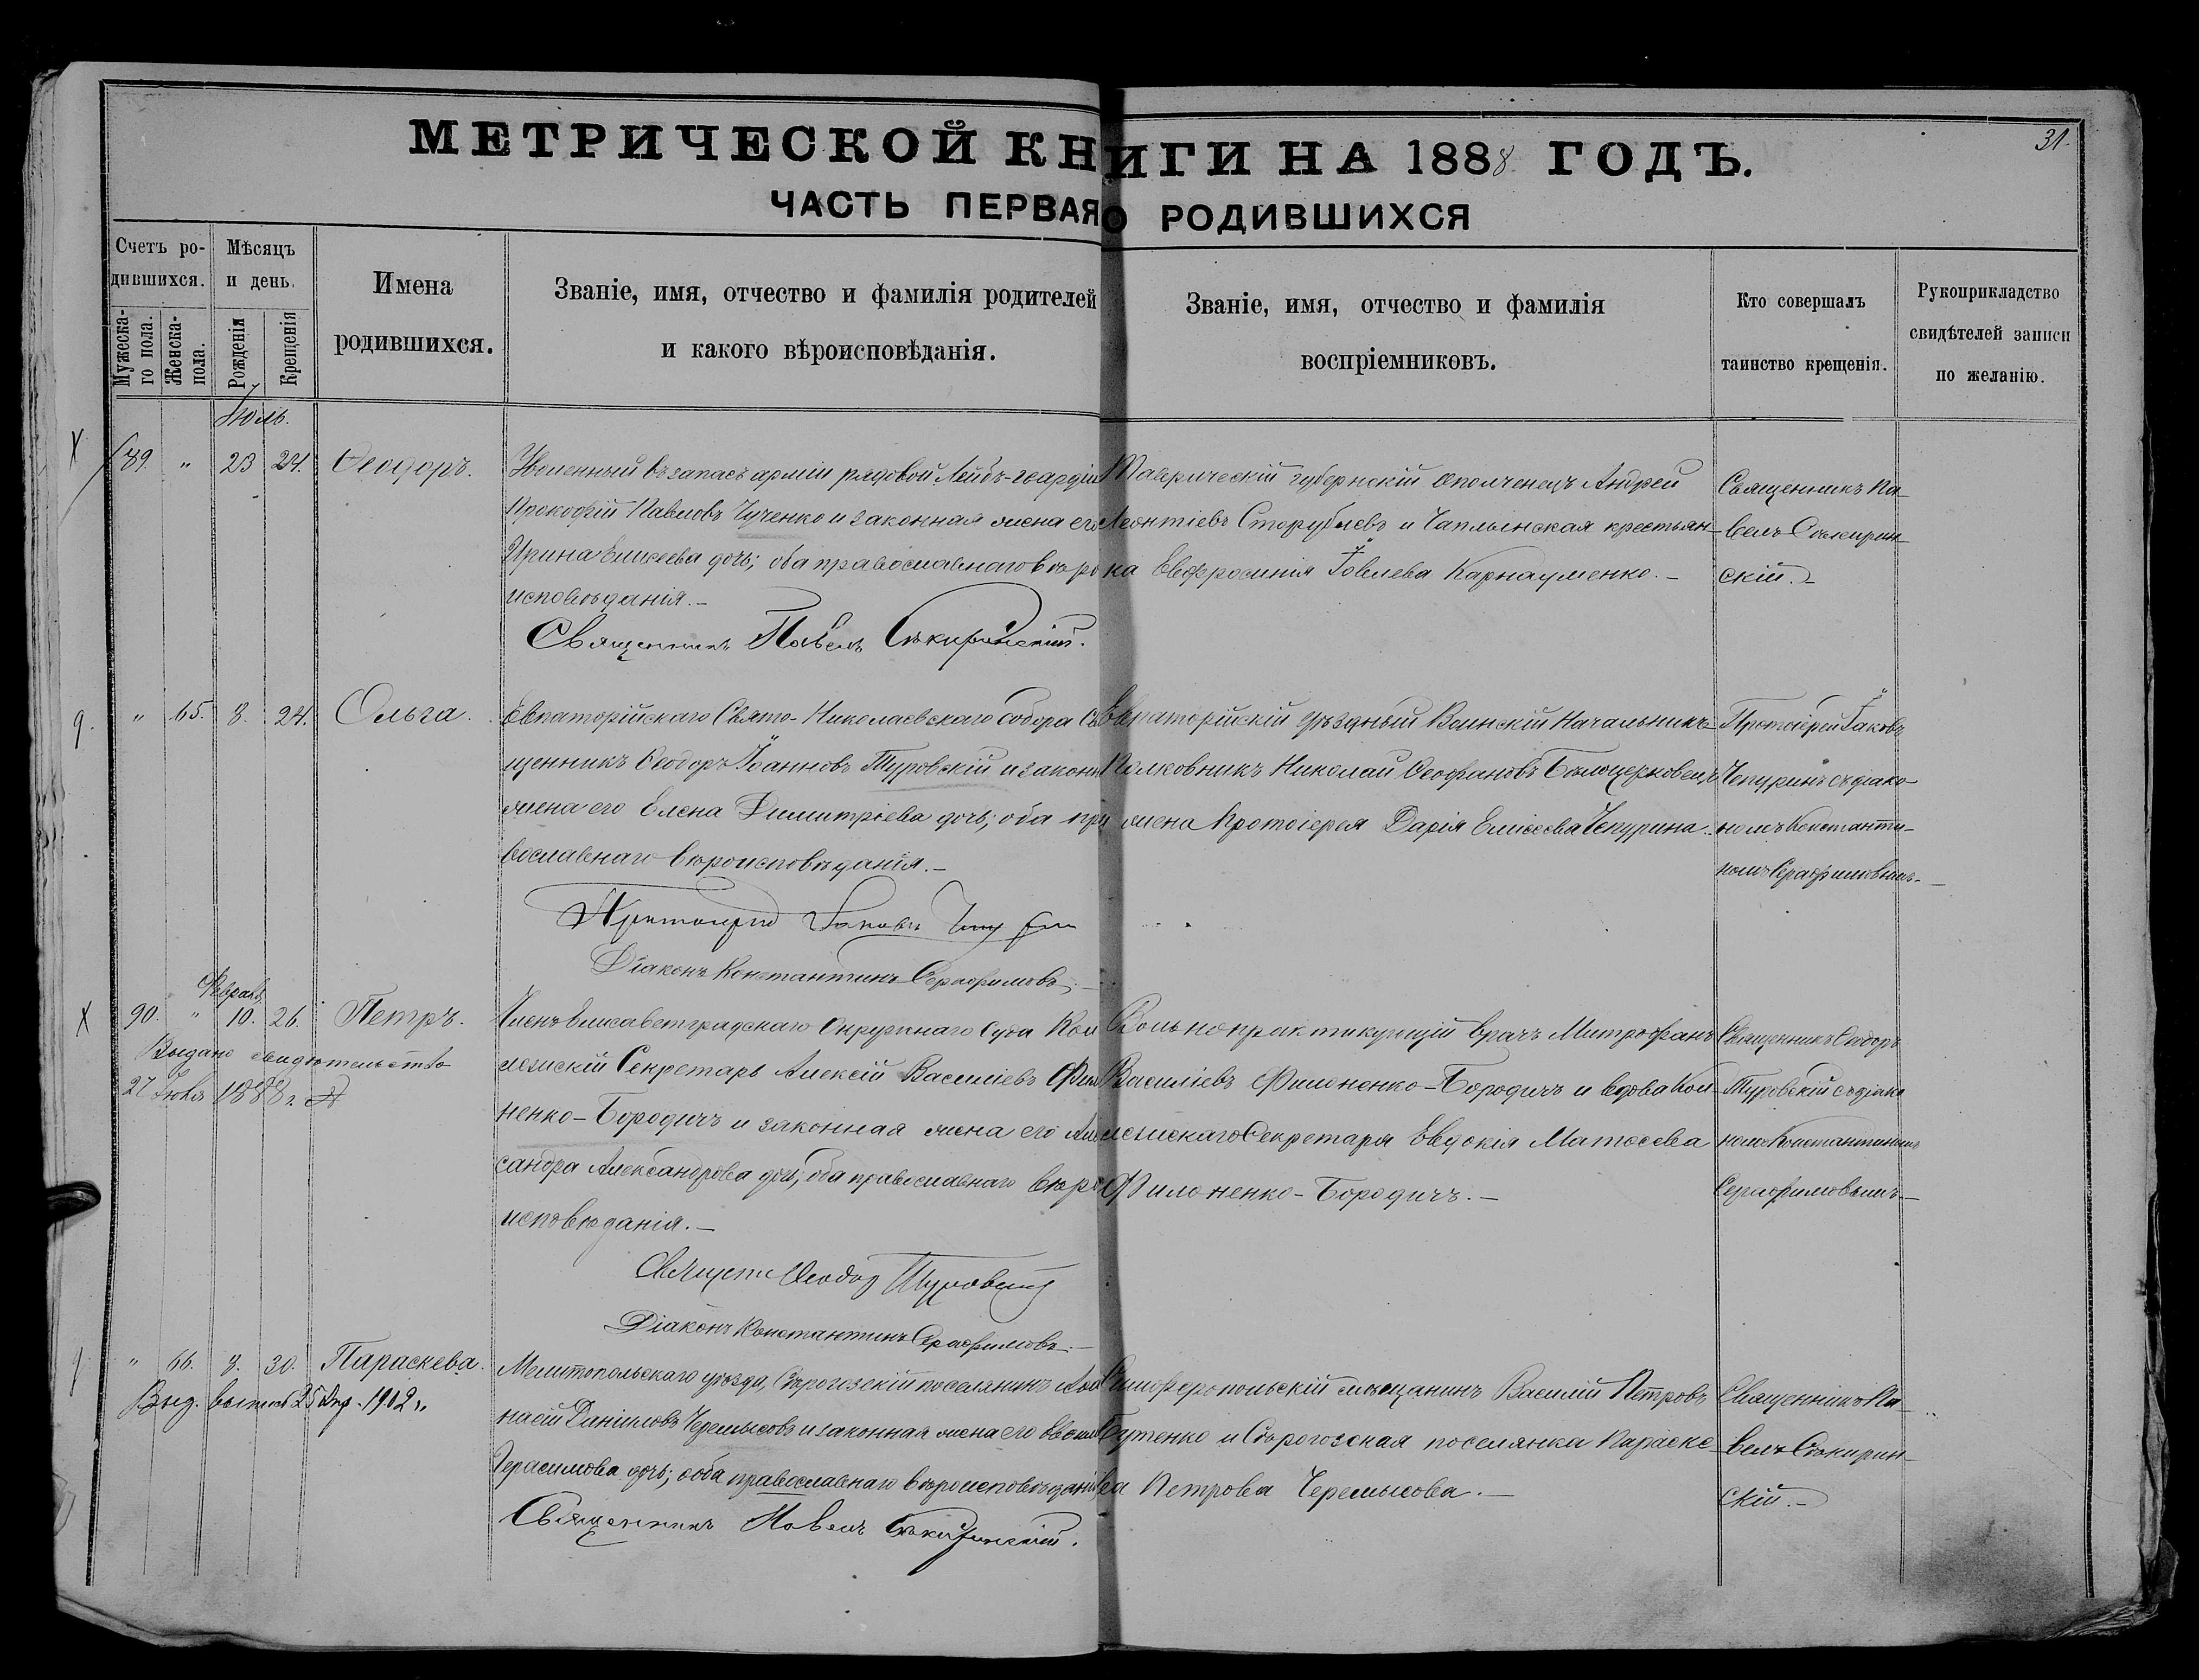 МЕТРИЧЕСКОЙ КНИГИ НА 1888 ГОДЪ.
31.
ЧАСТЬ ПЕРВАЯ О РОДИВШИХСЯ
Счетъ ро-
дившихся.
Мужеска-
го пола.
Женска-
пола.
Мѣсяцъ
и день.
Рожденія
Крещенія
Имена
родившихся.
Званіе, имя, отчество и фамилія родителей
и какого вѣроисповѣданія.
Званіе, имя, отчество и фамилія
воспріемниковъ.
Кто совершалъ
таинство крещенія.
Рукоприкладство
свидѣтелей записи
по желанію.
Іюль.
89. " 23 24. Ѳеодоръ.
Уволенный въ запасъ арміи рядовой Лейбъ-гвардіи
Прокофій Павловъ Чученко и законная жена его
Ирина Елисеева дочь; оба православнаго вѣро
исповѣданія.-
Священникъ Павелъ Сѣкиринскій.
Таврическій губернскій ополченецъ Андрей
Леонтіевъ Сторублевъ и Чаплынская крестьян-
ка Евфросинія Іовлева Карнауменко.-
Священникъ Па-
велъ Сѣкирин-
скій.-
" 65. 8. 24. Ольга.
Евпаторійскаго Свято-Николаевскаго собора Свя
щенникъ Ѳеодоръ Іоанновъ Туровскій и законн
жена его Елена Димитріева дочь; оба пра
вославнаго вѣроисповѣданія.-
Протоіерей Іаковъ
Діаконъ Константинъ Серафимовъ.-
Евпаторійскій уѣздный Воинскій Начальникъ
Полковникъ Николай Ѳеофановъ Бѣлоцерковецъ
жена Протоіерея Дарія Елисеева Чепурина.
Протоіерей Іаковъ
Чепуринъ съ діако-
номъ Константи-
номъ Серафимовымъ.-
Февраль
90. " 10. 26. Петръ.
Выдано свидѣтельство
27 Іюля 1888 г.
Членъ Елисаветградскаго Окружнаго Суда Кол
лежскій Секретарь Алексій Василіевъ Фило
ненко-Бородичъ и законная жена его Алек
сандра Александрова дочь; оба православнаго вѣро
исповѣданія.-
Священ Ѳеодор Туровскій
Діаконъ Константинъ Серафимовъ.-
Вольнопрактикующій врачъ Митрофанъ
Василіевъ Филоненко-Бородичъ и вдова Кол-
лежскаго Секретаря Евдокія Матѳеева
Филоненко-Бородичъ.-
Священникъ Ѳеодоръ
Туровскій съ діако
номъ Константиномъ
Серафимовымъ.-
" 66. 8. 30. Параскева.
Выд. выпись 25 1902 г.
Мелитопольскаго уѣзда, Сѣрогозскій поселянинъ Аѳа
насій Даніиловъ Черемысовъ и законная жена его
Герасимова дочь; оба православнаго вѣроисповѣданія
Священникъ Павелъ Сѣкиринскій.
Симферопольскій мѣщанинъ Василій Петровъ
Бутенко и Сѣрогозская поселянка Параске-
ва Петрова Черемысова.-
Священникъ Па-
велъ Сѣкирин-
скій.-